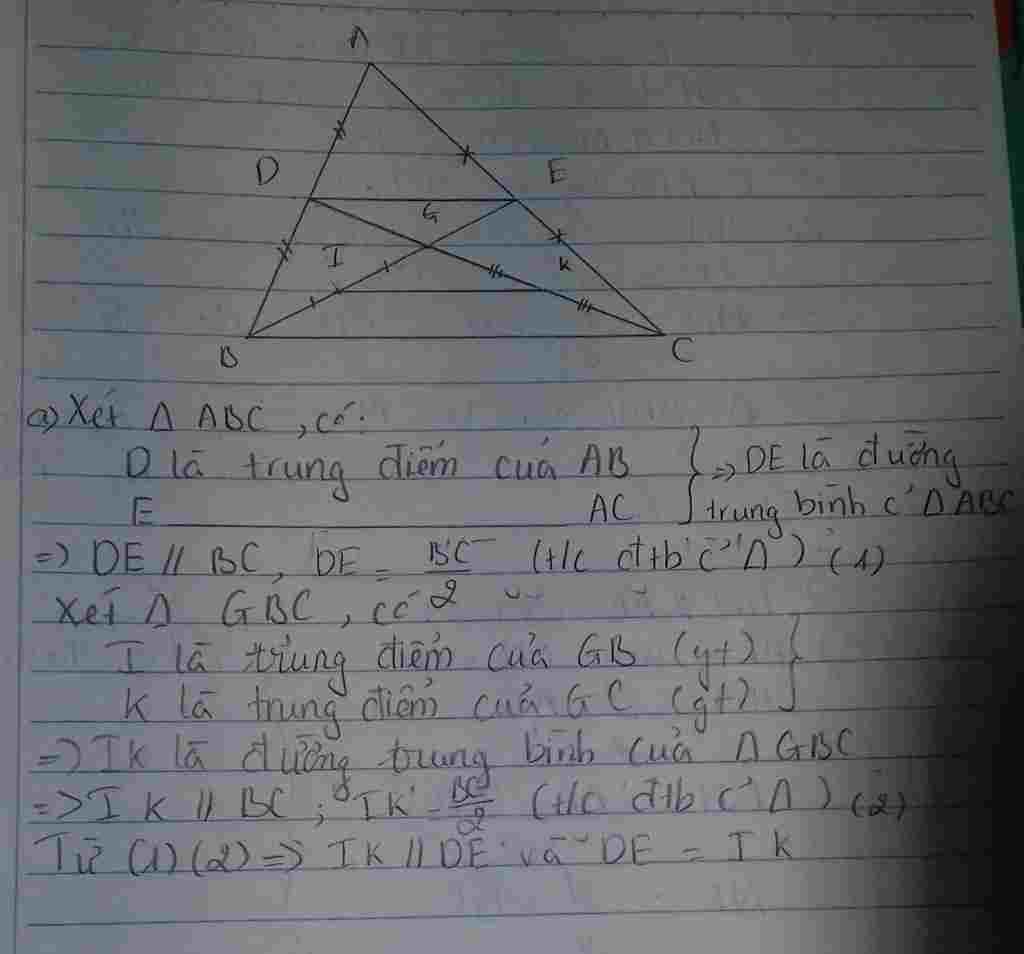 A
D
E
G
I
K
B
C
a) Xét Δ ABC, có:
D là trung điểm của AB } => DE là đường
E ———— AC } trung bình c' Δ ABC
=> DE // BC, DE = BC/2 (t/c đtb c' Δ) (1)
Xét Δ GBC, có
I là trung điểm của GB (gt) }
K là trung điểm của GC (gt) }
=> IK là đường trung bình của Δ GBC
=> IK // BC; IK = BC/2 (t/c đtb c' Δ) (2)
Từ (1) (2) => IK // DE và DE = IK